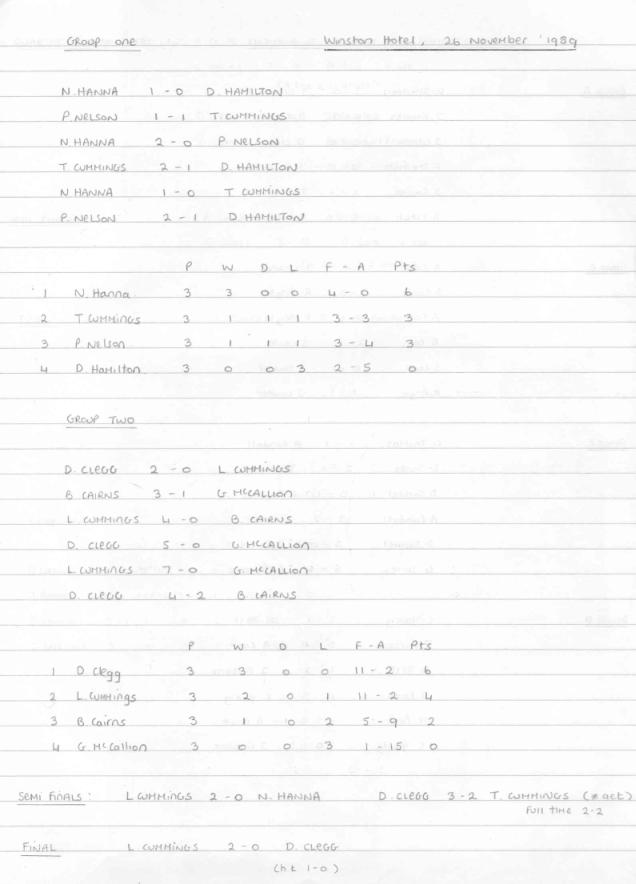 GROUP ONE Winston Hotel, 26 November '1989
N. HANNA 1 - 0 D. HAMILTON
P. NELSON 1 - 1 T. CUMMINGS
N. HANNA 2 - 0 P. NELSON
T CUMMINGS 2 - 1 D. HAMILTON
N HANNA 1 - 0 T CUMMINGS
P. NELSON 2 - 1 D. HAMILTON
P W D L F - A Pts
1 N. Hanna 3 3 0 0 4 - 0 6
2 T CUMMINGS 3 1 1 1 3 - 3 3
3 P. Nelson 3 1 1 1 3 - 4 3
4 D. Hamilton 3 0 0 3 2 - 5 0
GROUP TWO
D. CLEGG 2 - 0 L CUMMINGS
B CAIRNS 3 - 1 G McCALLION
L CUMMINGS 4 - 0 B CAIRNS
D. CLEGG 5 - 0 G. McCALLION
L. CUMMINGS 7 - 0 G. McCALLION
D. CLEGG 4 - 2 B CAIRNS
P W D L F - A Pts
1 D Clegg 3 3 0 0 11 - 2 6
2 L. Cummings 3 2 0 1 11 - 2 4
3 B. Cairns 3 1 0 2 5 - 9 2
4 G. McCallion 3 0 0 3 1 - 15 0
SEMI FINALS: L CUMMINGS 2 - 0 N. HANNA D. CLEGG 3 - 2 T. CUMMINGS
Full time 2-2
FINAL L CUMMINGS 2 - 0 D. CLEGG
(ht 1-0)